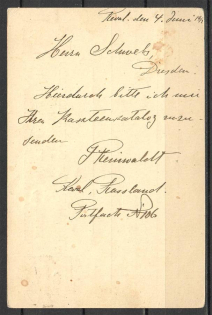 Reval. den 4. Juni 19
Herrn Schwet
Dresden.
Hierdurch bitte ich mir
Ihren katalog zuzu-
senden
Reval, Russland.
Postfach № 106